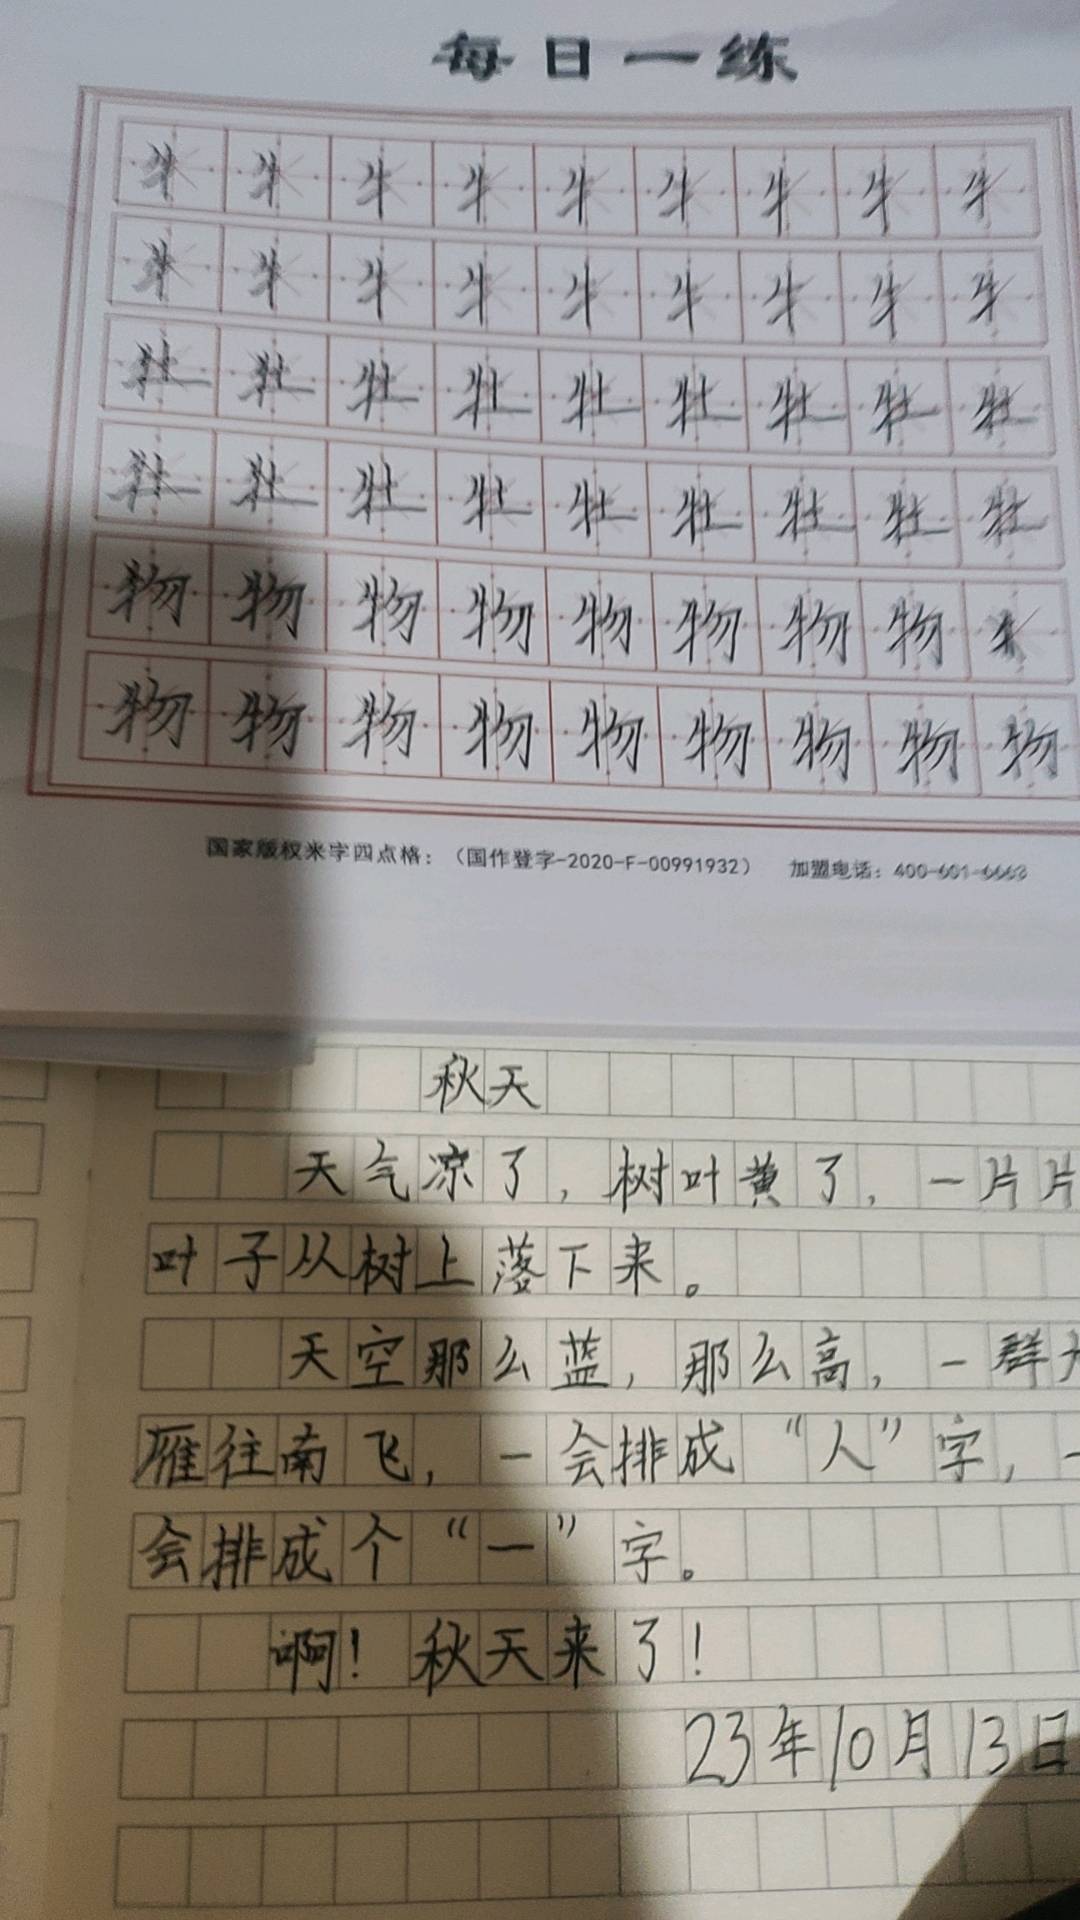 每日一练
牛牛牛牛牛牛牛牛牛
牛牛牛牛牛牛牛牛牛
牡牡牡牡牡牡牡牡牡
牡牡牡牡牡牡牡牡牡
物物物物物物物物
物物物物物物物物物
国家版权米字四点格：（国作登字-2020-F-00991932） 加盟电话：400-601-6663
秋天
天气凉了，树叶黄了，一片片
叶子从树上落下来。
天空那么蓝，那么高，一群大
雁往南飞，一会排成“人”字，一
会排成个“一”字。
啊！秋天来了！
23年10月13日